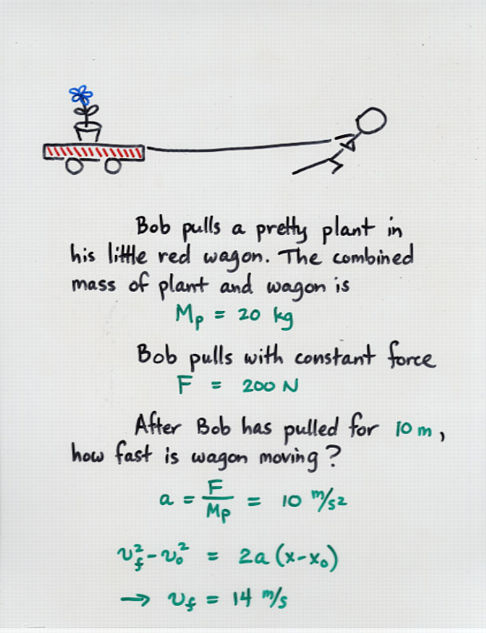 Bob pulls a pretty plant in
his little red wagon. The combined
mass of plant and wagon is
Mp = 20 kg
Bob pulls with constant force
F = 200 N
After Bob has pulled for 10 m,
how fast is wagon moving?
a = F/Mp = 10 m/s²
v_f² - v_o² = 2a (x-x₀)
→ v_f = 14 m/s